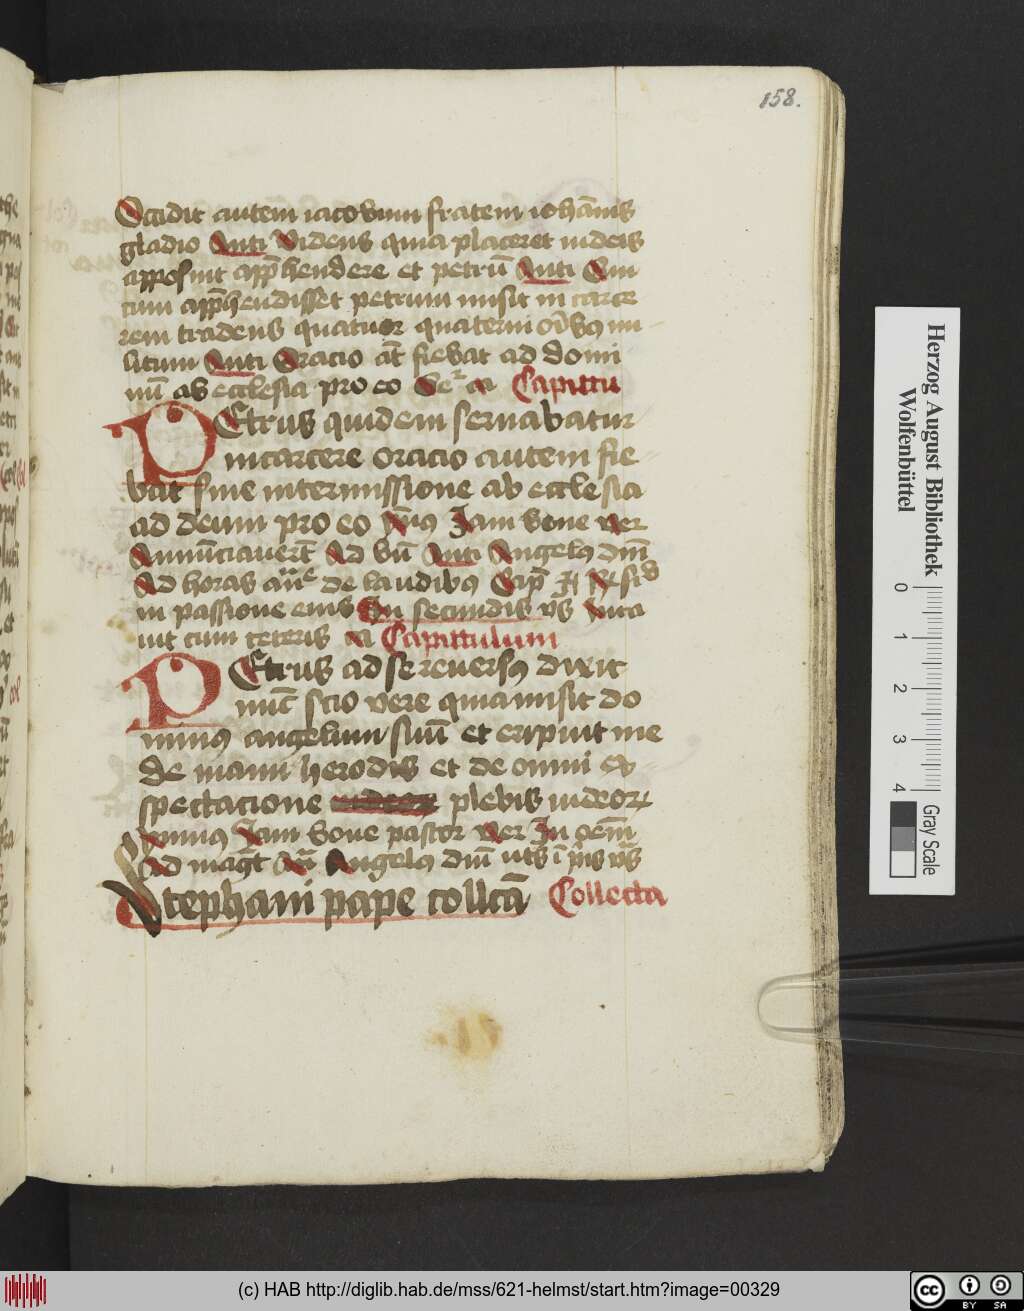 158.
Occidit autem iacobum fratrem iohānis
gladio Anti Videns quia placeret iudeis
apposuit app̄hendere et petrū Anti Cum
cum app̄hendisset petrum misit in carce
rem tradens quatuor quaternionibus mi
litum Anti Oracio aūt fiebat ad domi
nū ab ecclesia pro eo Capittu
PEtrus quidem seruabatur
in carcere oracio autem fie
bat sine intermissione ab ecclesia
ad deum pro eo ymnus Iam bone ver
Annunciauerūt Ad bn̄ Anti Angelus dn̄i
Ad horas de laudibus
in passione eius In secundis vs
uit cum ceteris Capittulum
PEtrus ad se reuersus dixit
nūc scio vere quia misit do
minus angelum suū et eripuit me
de manu herodis et de omni ex
spectacione plebis iudeor
ymnus Iam bone pastor ver In oem̄
Ad magt Angelus dn̄i
Stephani pape collcā Collecta
Herzog August Bibliothek
Wolfenbüttel
0 1 2 3 4
Gray Scale
(c) HAB http://diglib.hab.de/mss/621-helmst/start.htm?image=00329
cc BY SA